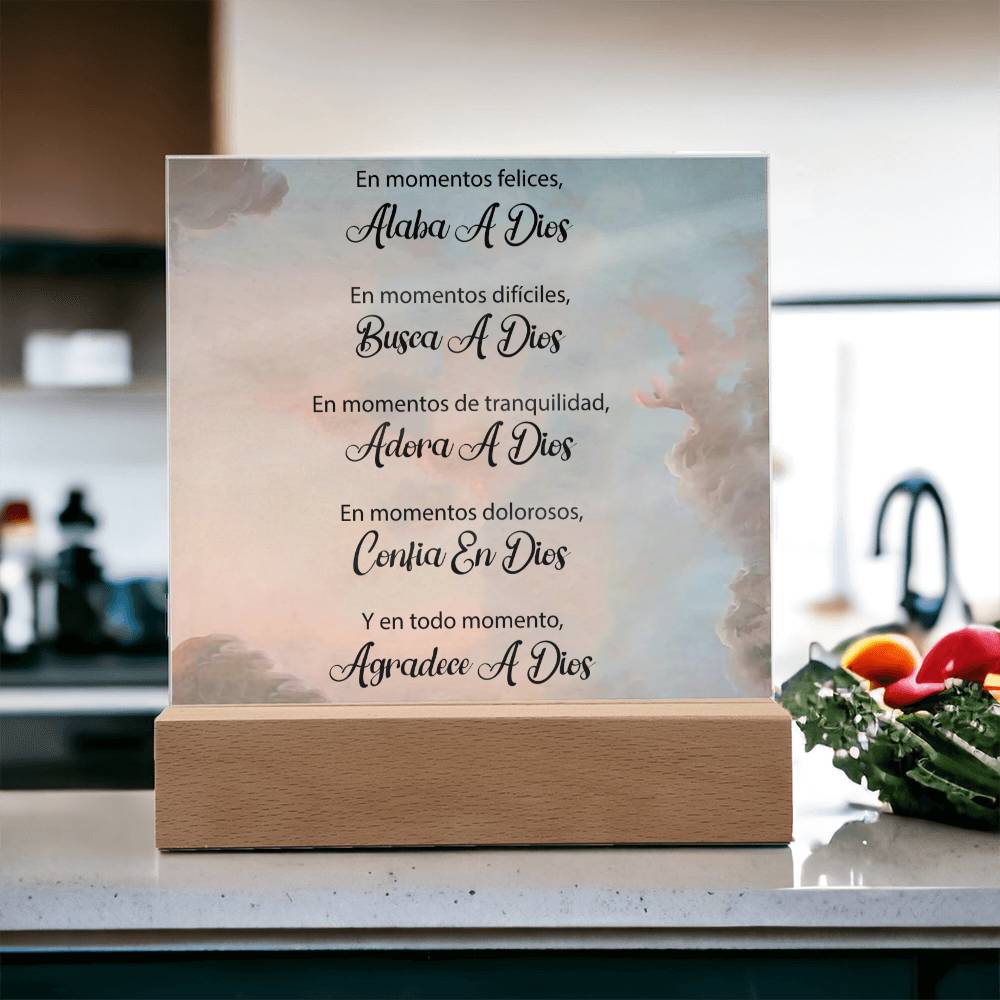 En momentos felices,
Alaba A Dios
En momentos difíciles,
Busca A Dios
En momentos de tranquilidad,
Adora A Dios
En momentos dolorosos,
Confia En Dios
Y en todo momento,
Agradece A Dios